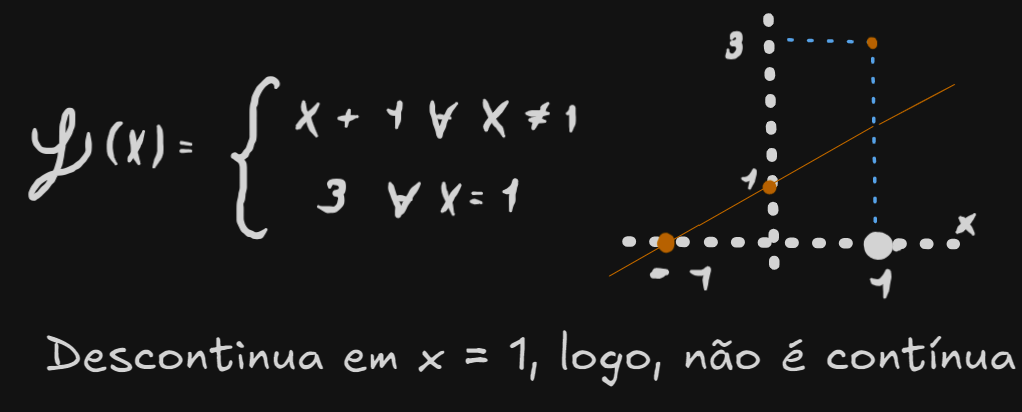 y(x) = { x + 1 ∀ x ≠ 1
3 ∀ x = 1
3
1
x
- 1
1
Descontinua em x = 1, logo, não é contínua